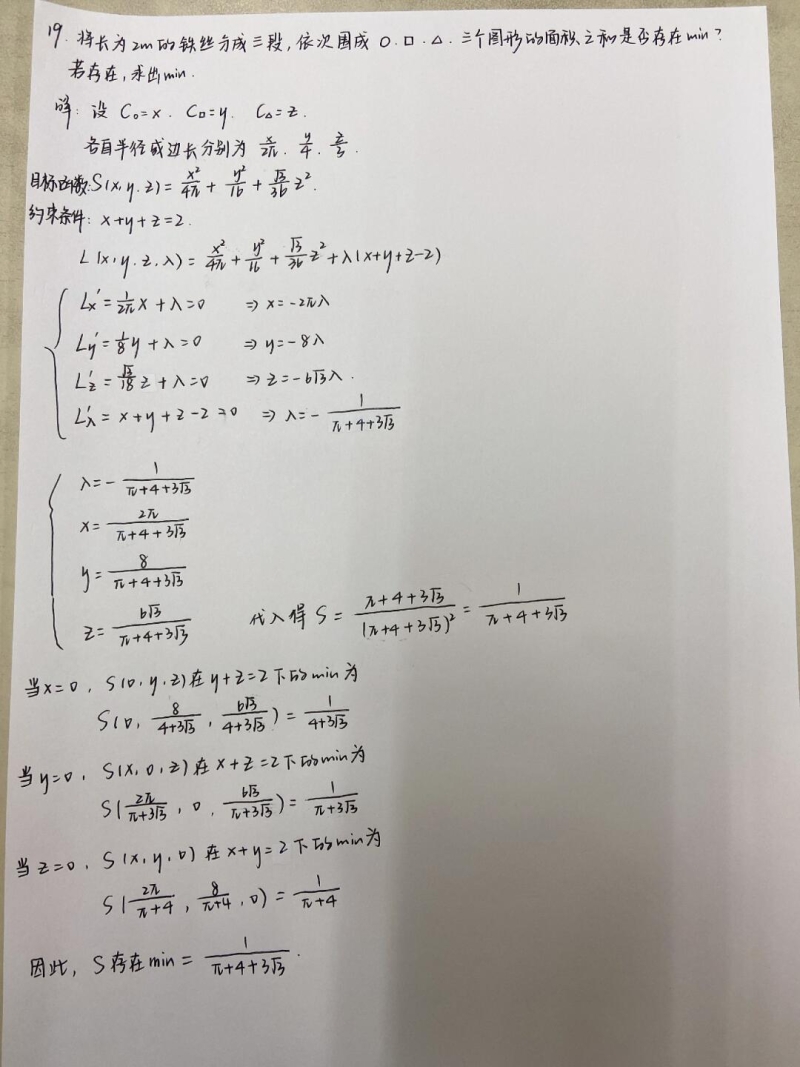 19. 将长为2m的铁丝分成三段,依次围成 ○.□.△. 三个图形的面积之和是否存在min?
若存在,求出min.
解: 设 C○=x. C□=y. C△=z.
各自半径或边长分别为 x/2π. y/4. z/3.
目标函数:S(x,y,z)= x²/4π + y²/16 + √3/36 z².
约束条件: x+y+z=2.
L(x,y,z,λ)= x²/4π + y²/16 + √3/36 z² + λ(x+y+z-2)
Lx'= 1/2π x + λ=0 ⇒ x=-2πλ
Ly'= 1/8 y + λ=0 ⇒ y=-8λ
Lz'= √3/18 z + λ=0 ⇒ z=-6√3λ.
Lλ'= x+y+z-2=0 ⇒ λ=- 1/(π+4+3√3)
λ=- 1/(π+4+3√3)
x= 2π/(π+4+3√3)
y= 8/(π+4+3√3)
z= 6√3/(π+4+3√3) 代入得 S= (π+4+3√3)/(π+4+3√3)² = 1/(π+4+3√3)
当x=0, S(0,y,z)在y+z=2下的min为
S(0, 8/(4+3√3), 6√3/(4+3√3))= 1/(4+3√3)
当y=0, S(x,0,z)在x+z=2下的min为
S(2π/(π+3√3), 0, 6√3/(π+3√3))= 1/(π+3√3)
当z=0, S(x,y,0)在x+y=2下的min为
S(2π/(π+4), 8/(π+4), 0)= 1/(π+4)
因此, S存在min= 1/(π+4+3√3).